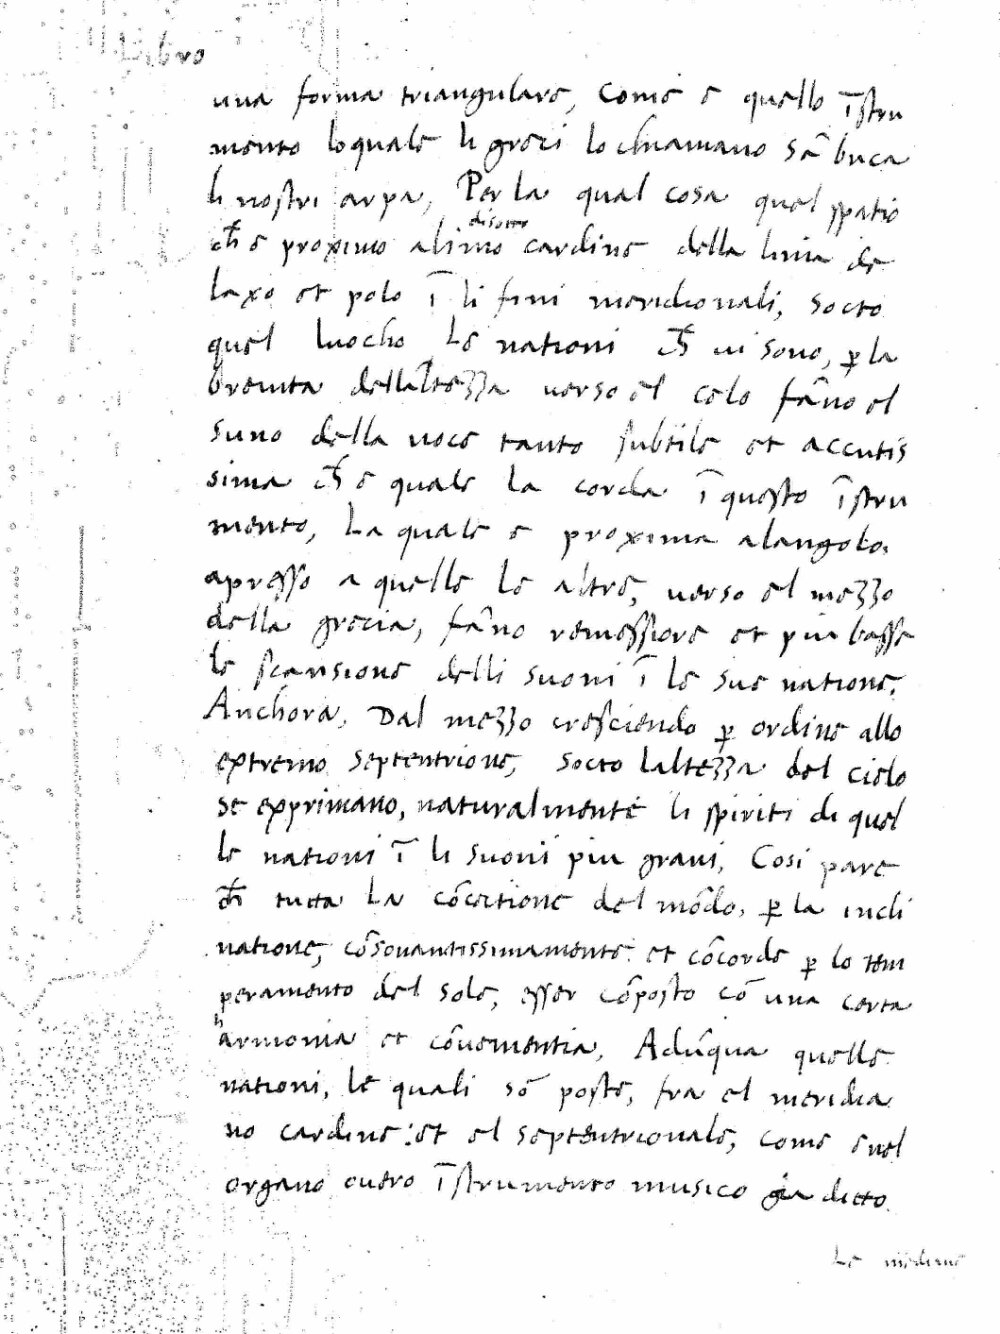 Libro
una forma triangulare, Come e quello īstru
mento loquale li greci lo chiamano sābuca
li nostri arpa, Per la qual cosa quel spatio
ch̄ e proximo alimo cardine della linia de
disotto
laxo et polo ī li fini meridionali, socto
quel luocho, Le nationi ch̄ ui sono, ꝑ la
breuita dellaltezza uerso el celo fāno el
suno della uoce tanto subtile et accutis
sima ch̄ e quale la corda ī questo īstru
mento, La quale e proxima alangolo.
apresso a quelle le altre, uerso el mezzo
della grecia, fāno remessiore et piu basse
le scansione delli suoni ī le sue natione.
Anchora, Dal mezzo cresciendo ꝑ ordine allo
extremo septentrione, socto laltezza del cielo
se exprimano, naturalmente li spiriti di quel
le nationi ī li suoni piu graui, Cosi pare
ch̄ tucta La cōcetione del mōdo, ꝑ la incli
natione, cōsonantissimamente et cōcorde ꝑ lo tem
peramento del sole, esser cōposto cō una certa
harmonia et cōuenientia, Adūqua quelle
nationi, le quali sō poste, fra el meridia
no cardine: et el septentrionale, come e nel
organo ouero īstrumento musico gia ditto
Le medeme